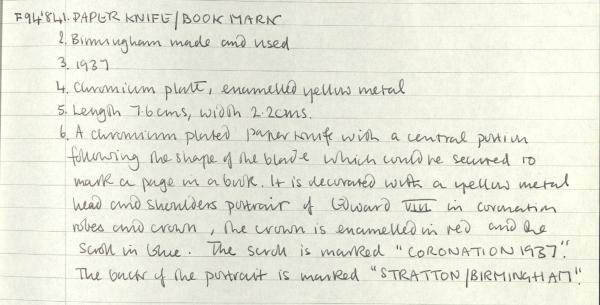 F94'84 1. PAPER KNIFE/BOOK MARK
2. Birmingham made and used
3. 1937
4. Chromium plate, enamelled yellow metal
5. Length 7.6cms, width 2.2cms.
6. A chromium plated paper knife with a central portion
following the shape of the blade which could be secured to
mark a page in a book. It is decorated with a yellow metal
head and shoulders portrait of Edward VIII in coronation
robes and crown, the crown is enamelled in red and the
scroll in blue. The scroll is marked "CORONATION 1937".
The back of the portrait is marked "STRATTON/BIRMINGHAM".